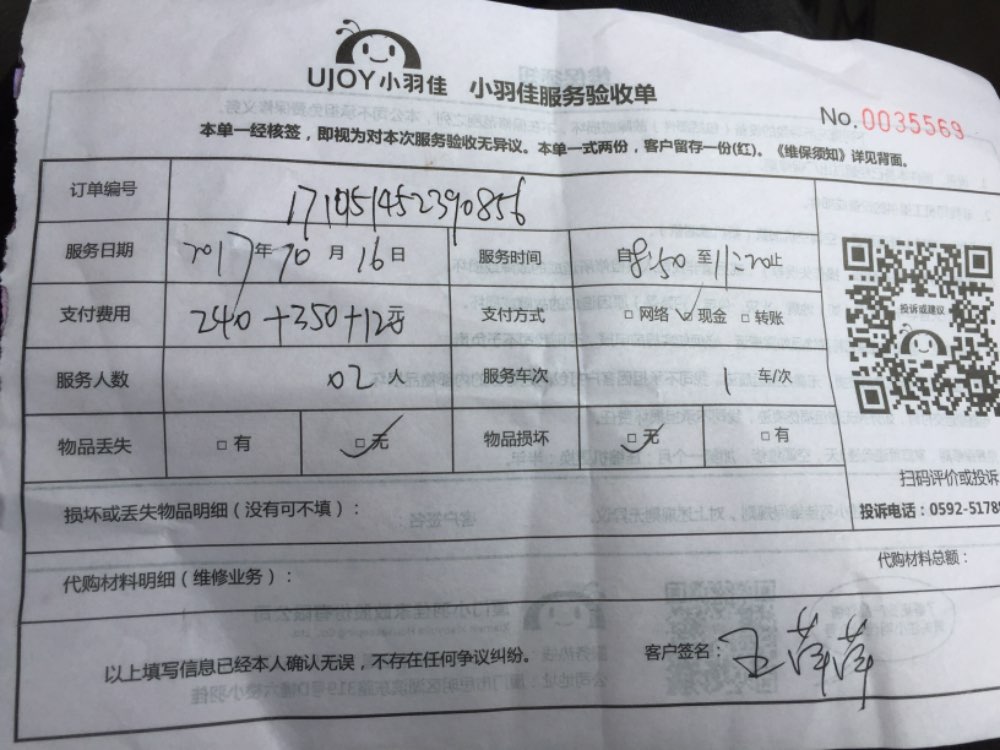 UJOY小羽佳 小羽佳服务验收单
No.0035569
本单一经核签，即视为对本次服务验收无异议。本单一式两份，客户留存一份(红)。《维保须知》详见背面。
订单编号
服务日期 2017年10月16日 服务时间 自8:50至11:20止
支付费用 240+350+12元 支付方式 □网络 □现金 □转账
服务人数 02人 服务车次 1 车/次
物品丢失 □有 □无 物品损坏 □无 □有
投诉或建议
扫码评价或投诉
损坏或丢失物品明细（没有可不填）：
投诉电话：0592-5178
代购材料明细（维修业务）：
代购材料总额：
以上填写信息已经本人确认无误，不存在任何争议纠纷。
客户签名：王萍萍